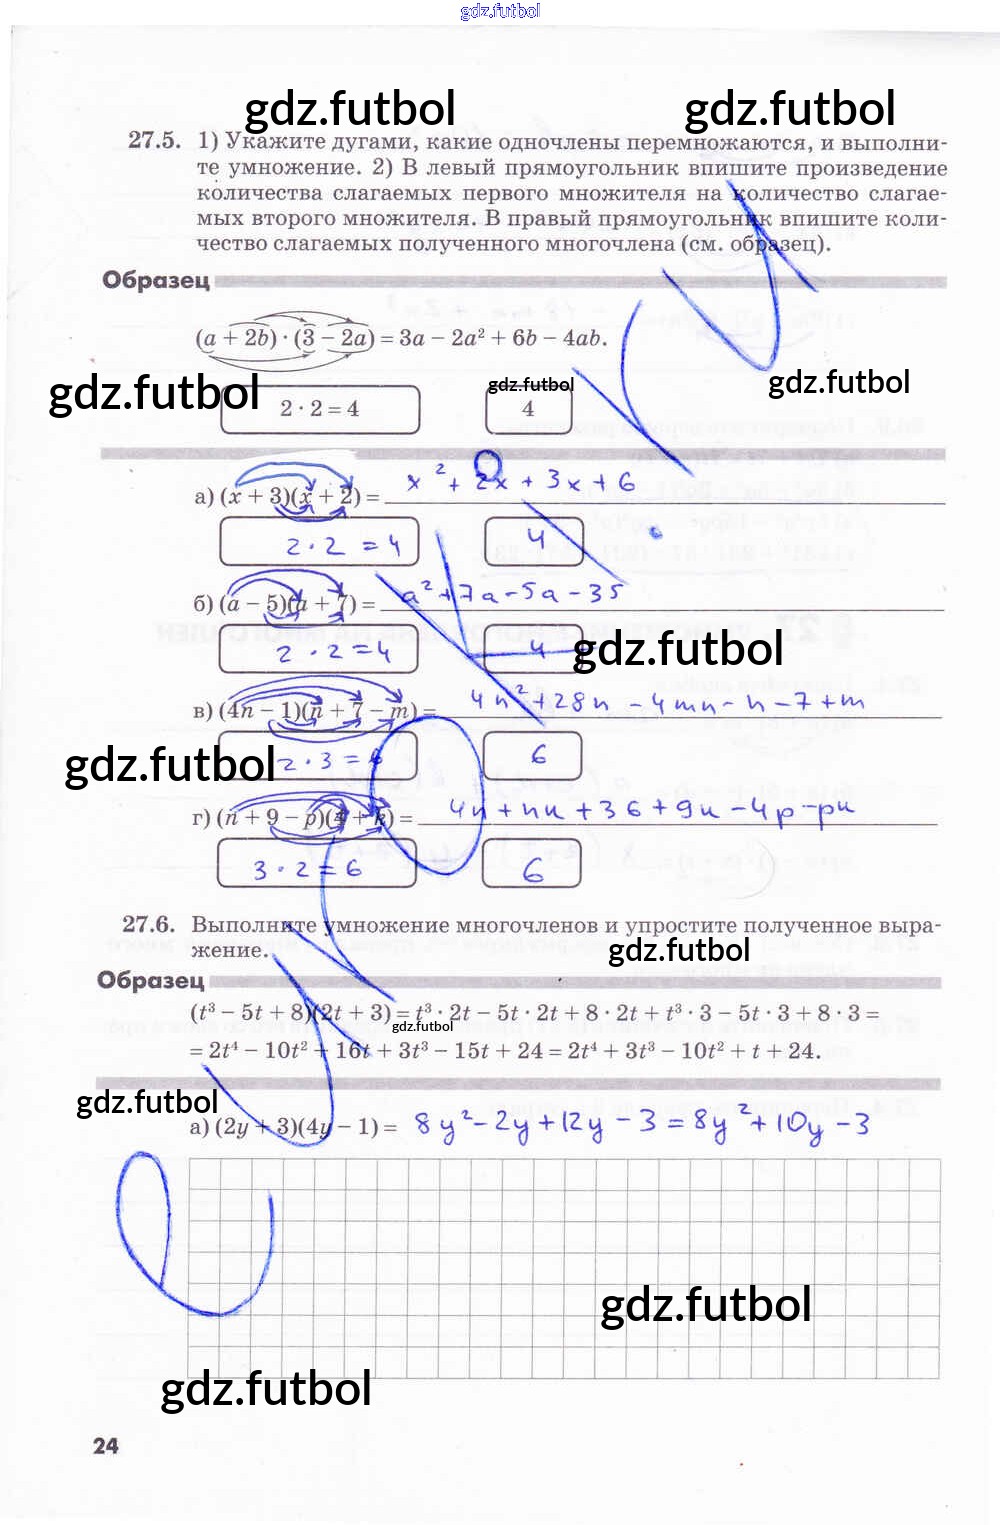 gdz.futbol
gdz.futbol gdz.futbol
27.5. 1) Укажите дугами, какие одночлены перемножаются, и выполни-
те умножение. 2) В левый прямоугольник впишите произведение
количества слагаемых первого множителя на количество слагае-
мых второго множителя. В правый прямоугольник впишите коли-
чество слагаемых полученного многочлена (см. образец).
Образец
(a + 2b) · (3 − 2a) = 3a − 2a² + 6b − 4ab.
gdz.futbol gdz.futbol gdz.futbol
2 · 2 = 4 4
а) (x + 3)(x + 2) = x² + 2x + 3x + 6
2 · 2 = 4 4
б) (a − 5)(a + 7) = a² + 7a − 5a − 35
2 · 2 = 4 4
gdz.futbol
в) (4n − 1)(n + 7 − m) = 4n² + 28n − 4mn − n − 7 + m
2 · 3 = 6 6
gdz.futbol
г) (n + 9 − p)(4 + k) = 4n + nk + 36 + 9k − 4p − pk
3 · 2 = 6 6
27.6. Выполните умножение многочленов и упростите полученное выра-
жение.
gdz.futbol
Образец
(t³ − 5t + 8)(2t + 3) = t³ · 2t − 5t · 2t + 8 · 2t + t³ · 3 − 5t · 3 + 8 · 3 =
gdz.futbol
= 2t⁴ − 10t² + 16t + 3t³ − 15t + 24 = 2t⁴ + 3t³ − 10t² + t + 24.
gdz.futbol
а) (2y + 3)(4y − 1) = 8y² − 2y + 12y − 3 = 8y² + 10y − 3
gdz.futbol
gdz.futbol
24